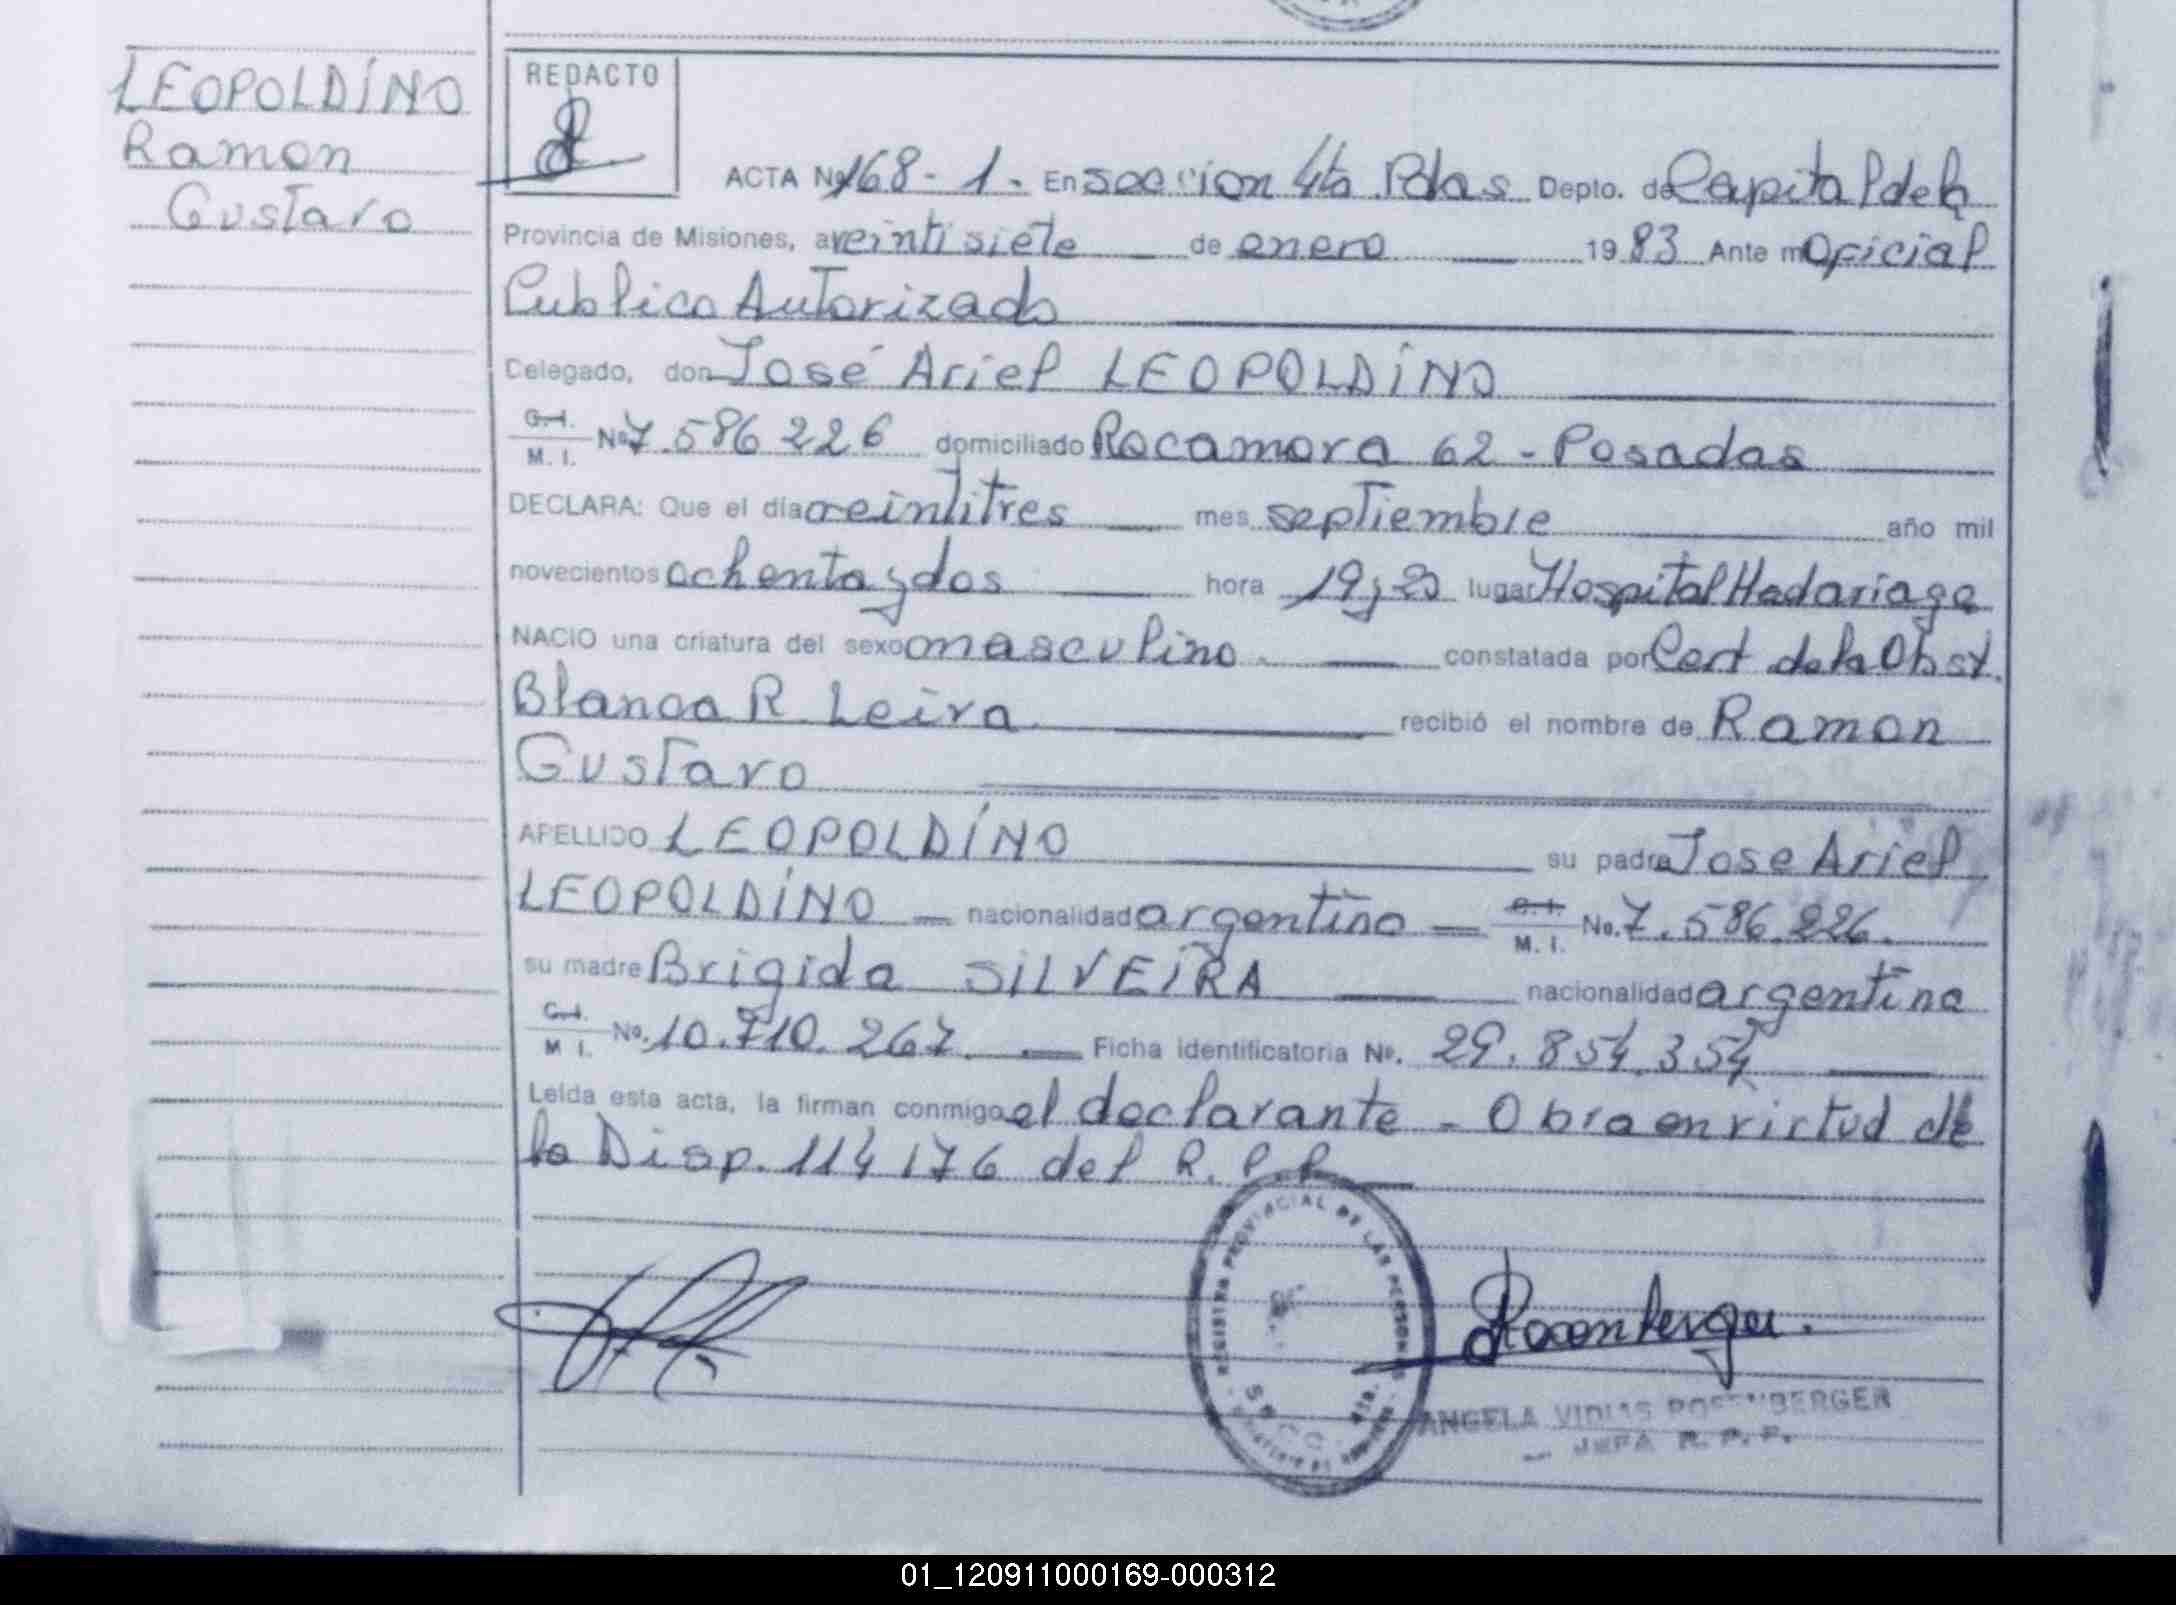 LEOPOLDÍNO
Ramon
Gustavo
REDACTO
ACTA No 168-1. En seccion 4ta Pdas Depto. de Capital de la
Provincia de Misiones, a veintisiete de enero 1983 Ante mi Oficial
Publico Autorizado
Celegado, don José Ariel LEOPOLDÍNO
C.I.
M. I. No 7.586226 domiciliado Rocamora 62 - Posadas
DECLARA: Que el dia veintitres mes septiembre año mil
novecientos ochenta y dos hora 19 y 20 lugar Hospital Madariaga
NACIO una criatura del sexo masculino. constatada por Cert de la Obst.
Blanca R Leiva recibió el nombre de Ramon
Gustavo
APELLIDO LEOPOLDÍNO su padre Jose Ariel
LEOPOLDÍNO nacionalidad argentino C.I.
M. I. No. 7.586.226.
su madre Brigida SILVEIRA nacionalidad argentina
C.I.
M I. No. 10.710.267. Ficha identificatoria No. 29.854.354
Leida esta acta, la firman conmigo el declarante - Obra en virtud de
la Disp. 114/76 del R.P.P.
REGISTRO PROVINCIAL DE LAS PERSONAS
Rosenberger.
ANGELA VIDIAS ROSENBERGER
JEFA R. P. P.
01_120911000169-000312